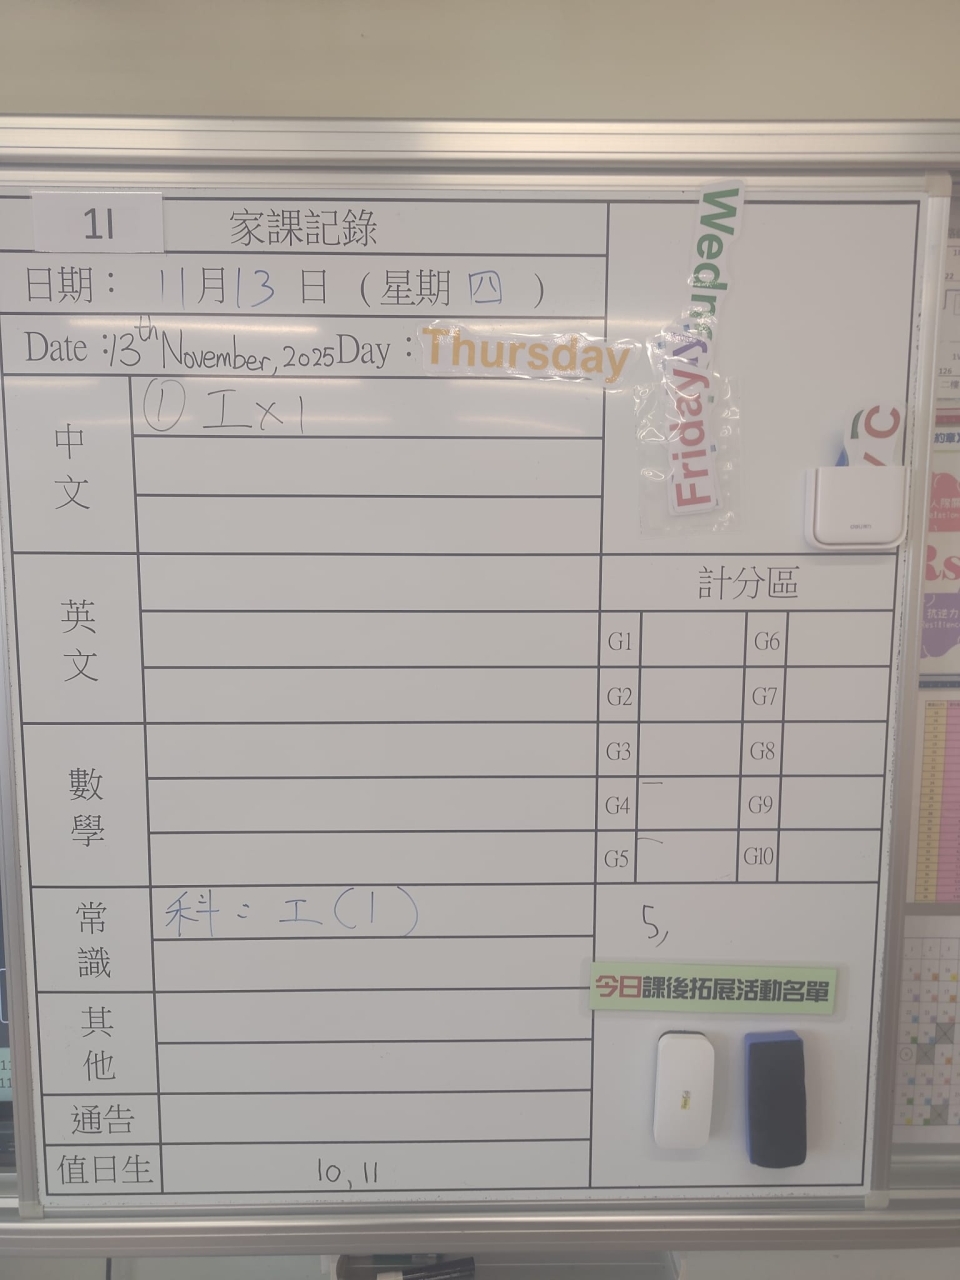 1I 家課記錄
日期： 11月13日 (星期四)
Date :13th November, 2025 Day : Thursday
Wedn
Friday
y
C
中文 ① 工x1
英文
數學
計分區
G1 G6
G2 G7
G3 G8
G4 G9
G5 G10
常識 科：工(1)
5,
今日課後拓展活動名單
其他
通告
值日生 10, 11